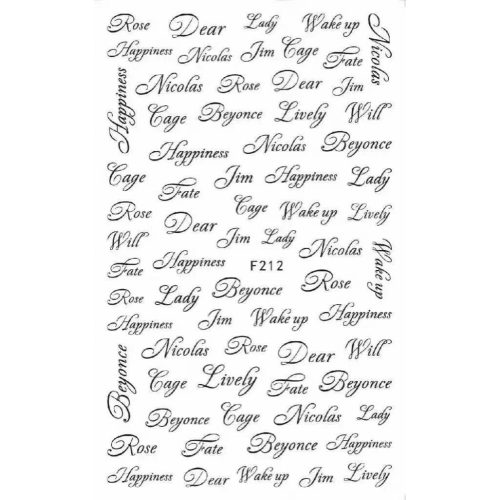 Rose Dear Lady Wake up Nicolas
Happiness Nicolas Jim Cage Fate
Happiness Nicolas Rose Dear Jim
Cage Beyonce Lively Will
Happiness Nicolas Beyonce
Cage Fate Jim Happiness Lady
Rose Dear Cage Wake up Lively
Will Jim Lady Nicolas Wake up
Fate Happiness F212
Rose Lady Beyonce Rose
Happiness Jim Wake up Happiness
Beyonce Nicolas Rose Dear Will
Cage Lively Fate Beyonce
Beyonce Cage Nicolas Lady
Rose Fate Beyonce Happiness
Happiness Dear Wake up Jim Lively